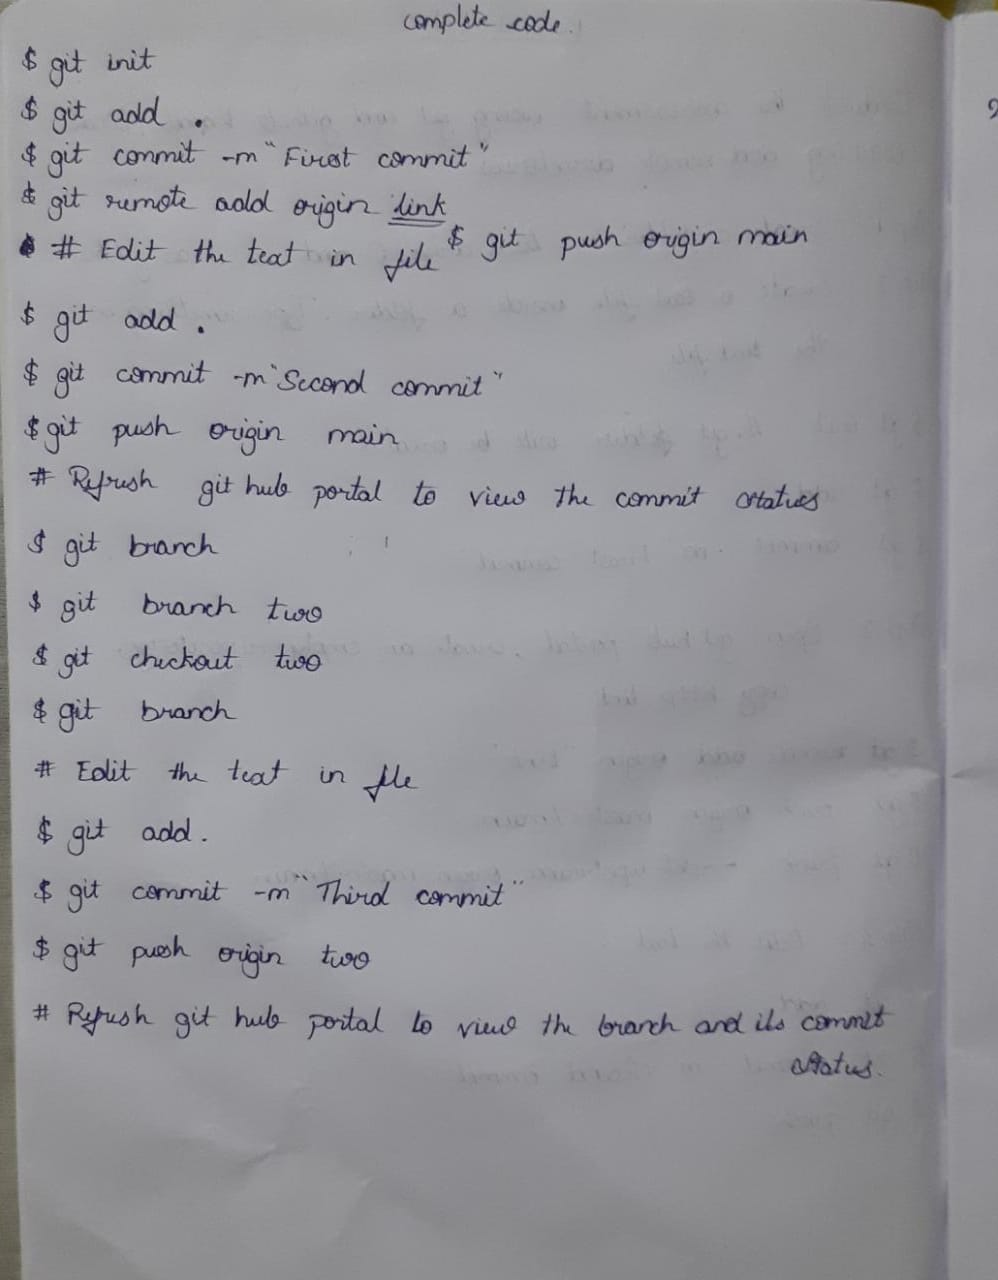 complete code.
$ git init
$ git add .
$ git commit -m "First commit"
$ git remote add origin link
# Edit the text in file $ git push origin main
$ git add .
$ git commit -m "Second commit"
$ git push origin main
# Refresh git hub portal to view the commit status
$ git branch
$ git branch two
$ git checkout two
$ git branch
# Edit the text in file
$ git add .
$ git commit -m "Third commit"
$ git push origin two
# Refresh git hub portal to view the branch and its commit
status.